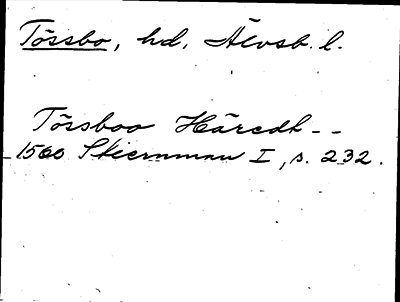 Tössbo, hd, Älvsb. l.
Törsboo Häredt - -
1560 Stiernman I, s. 232.